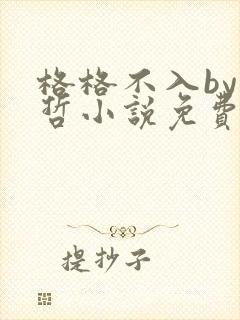 格格不入by
哲小說免費
提抄子